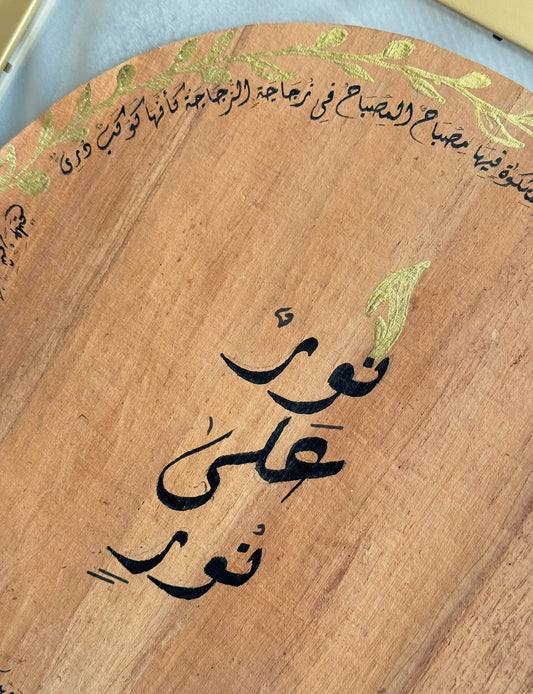 فِيهَا مِصْبَاحٌ الْمِصْبَاحُ فِي زُجَاجَةٍ الزُّجَاجَةُ كَأَنَّهَا كَوْكَبٌ دُرِّيٌّ
نورٌ
عَلىٰ
نُورٍ